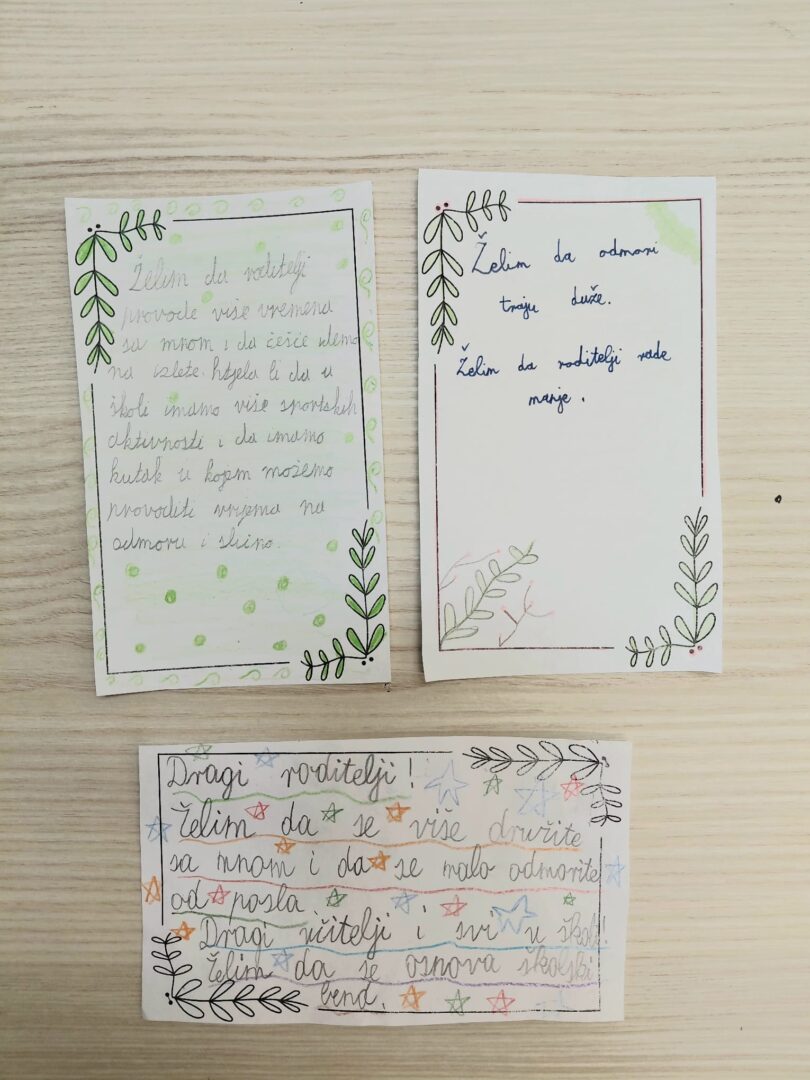 Želim da roditelji
provode više vremena
sa mnom i da češće idemo
na izlete. htjela bi da u
školi imamo više sportskih
aktivnosti i da imamo
kutak u kojem možemo
provoditi vrijeme na
odmoru i slično.
Želim da odmori
traju duže.
Želim da roditelji rade
manje.
Dragi roditelji!
Želim da se više družite
sa mnom i da se malo odmorite
od posla.
Dragi učitelji i svi u školi!
Želim da se osnova školski
bend.